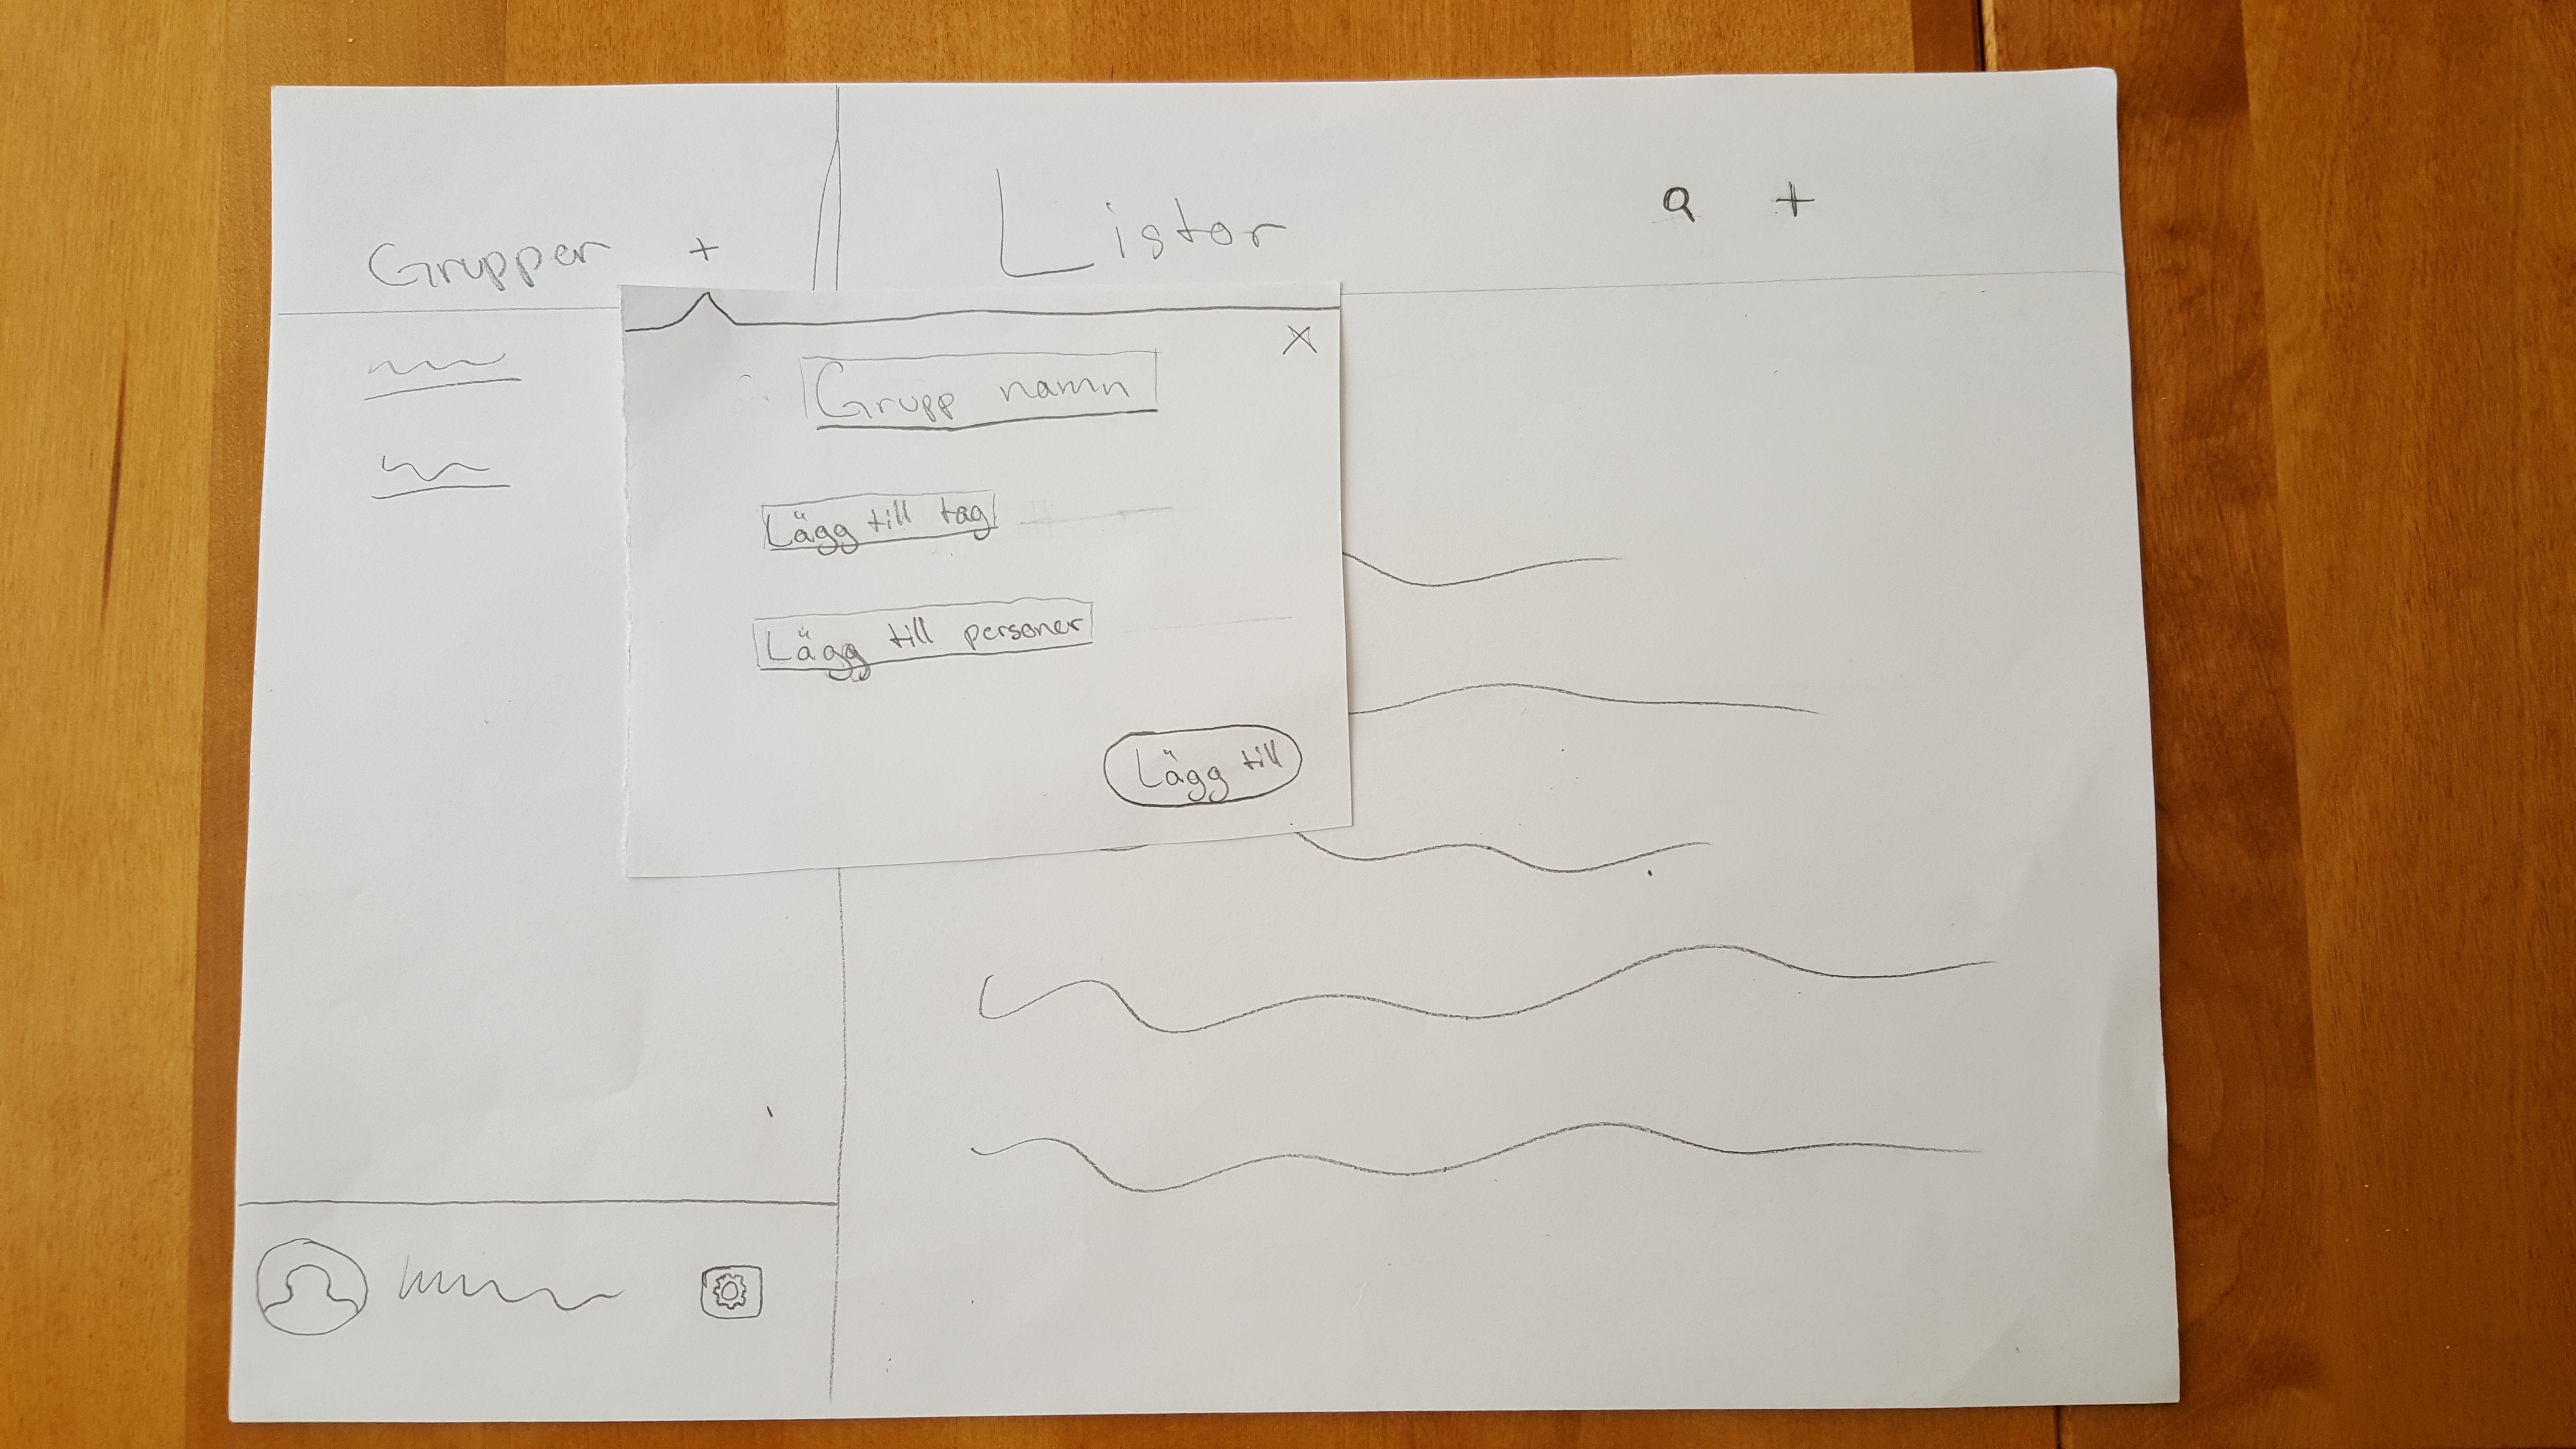 Grupper +
Listor +
X
Grupp namn
Lägg till tag
Lägg till personer
Lägg till